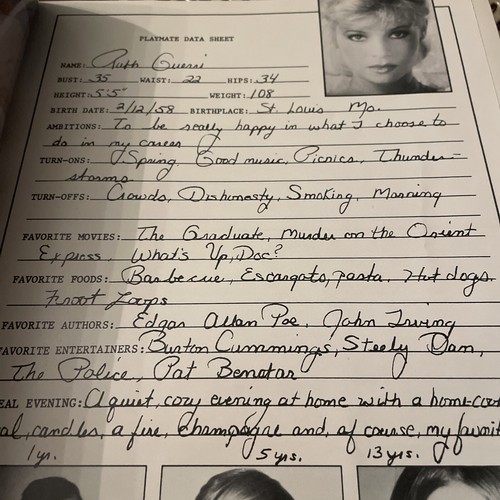 PLAYMATE DATA SHEET
NAME: Ruth Guerri
BUST: 35 WAIST: 22 HIPS: 34
HEIGHT: 5'5" WEIGHT: 108
BIRTH DATE: 2/12/58 BIRTHPLACE: St. Louis Mo.
AMBITIONS: To be really happy in what I choose to
do in my career
TURN-ONS: Spring, Good music, Picnics, Thunder-
storms
TURN-OFFS: Crowds, Dishonesty, Smoking, Morning
FAVORITE MOVIES: The Graduate, Murder on the Orient
Express, What's Up, Doc?
FAVORITE FOODS: Barbecue, Escargots, pasta, Hot dogs,
Froot Loops
FAVORITE AUTHORS: Edgar Allan Poe, John Irving
FAVORITE ENTERTAINERS: Burton Cummings, Steely Dan,
The Police, Pat Benatar
EAL EVENING: A quiet, cozy evening at home with a home-coo
al, candles, a fire, champagne and, of course, my favorit
1 yr. 5 yrs. 13 yrs.